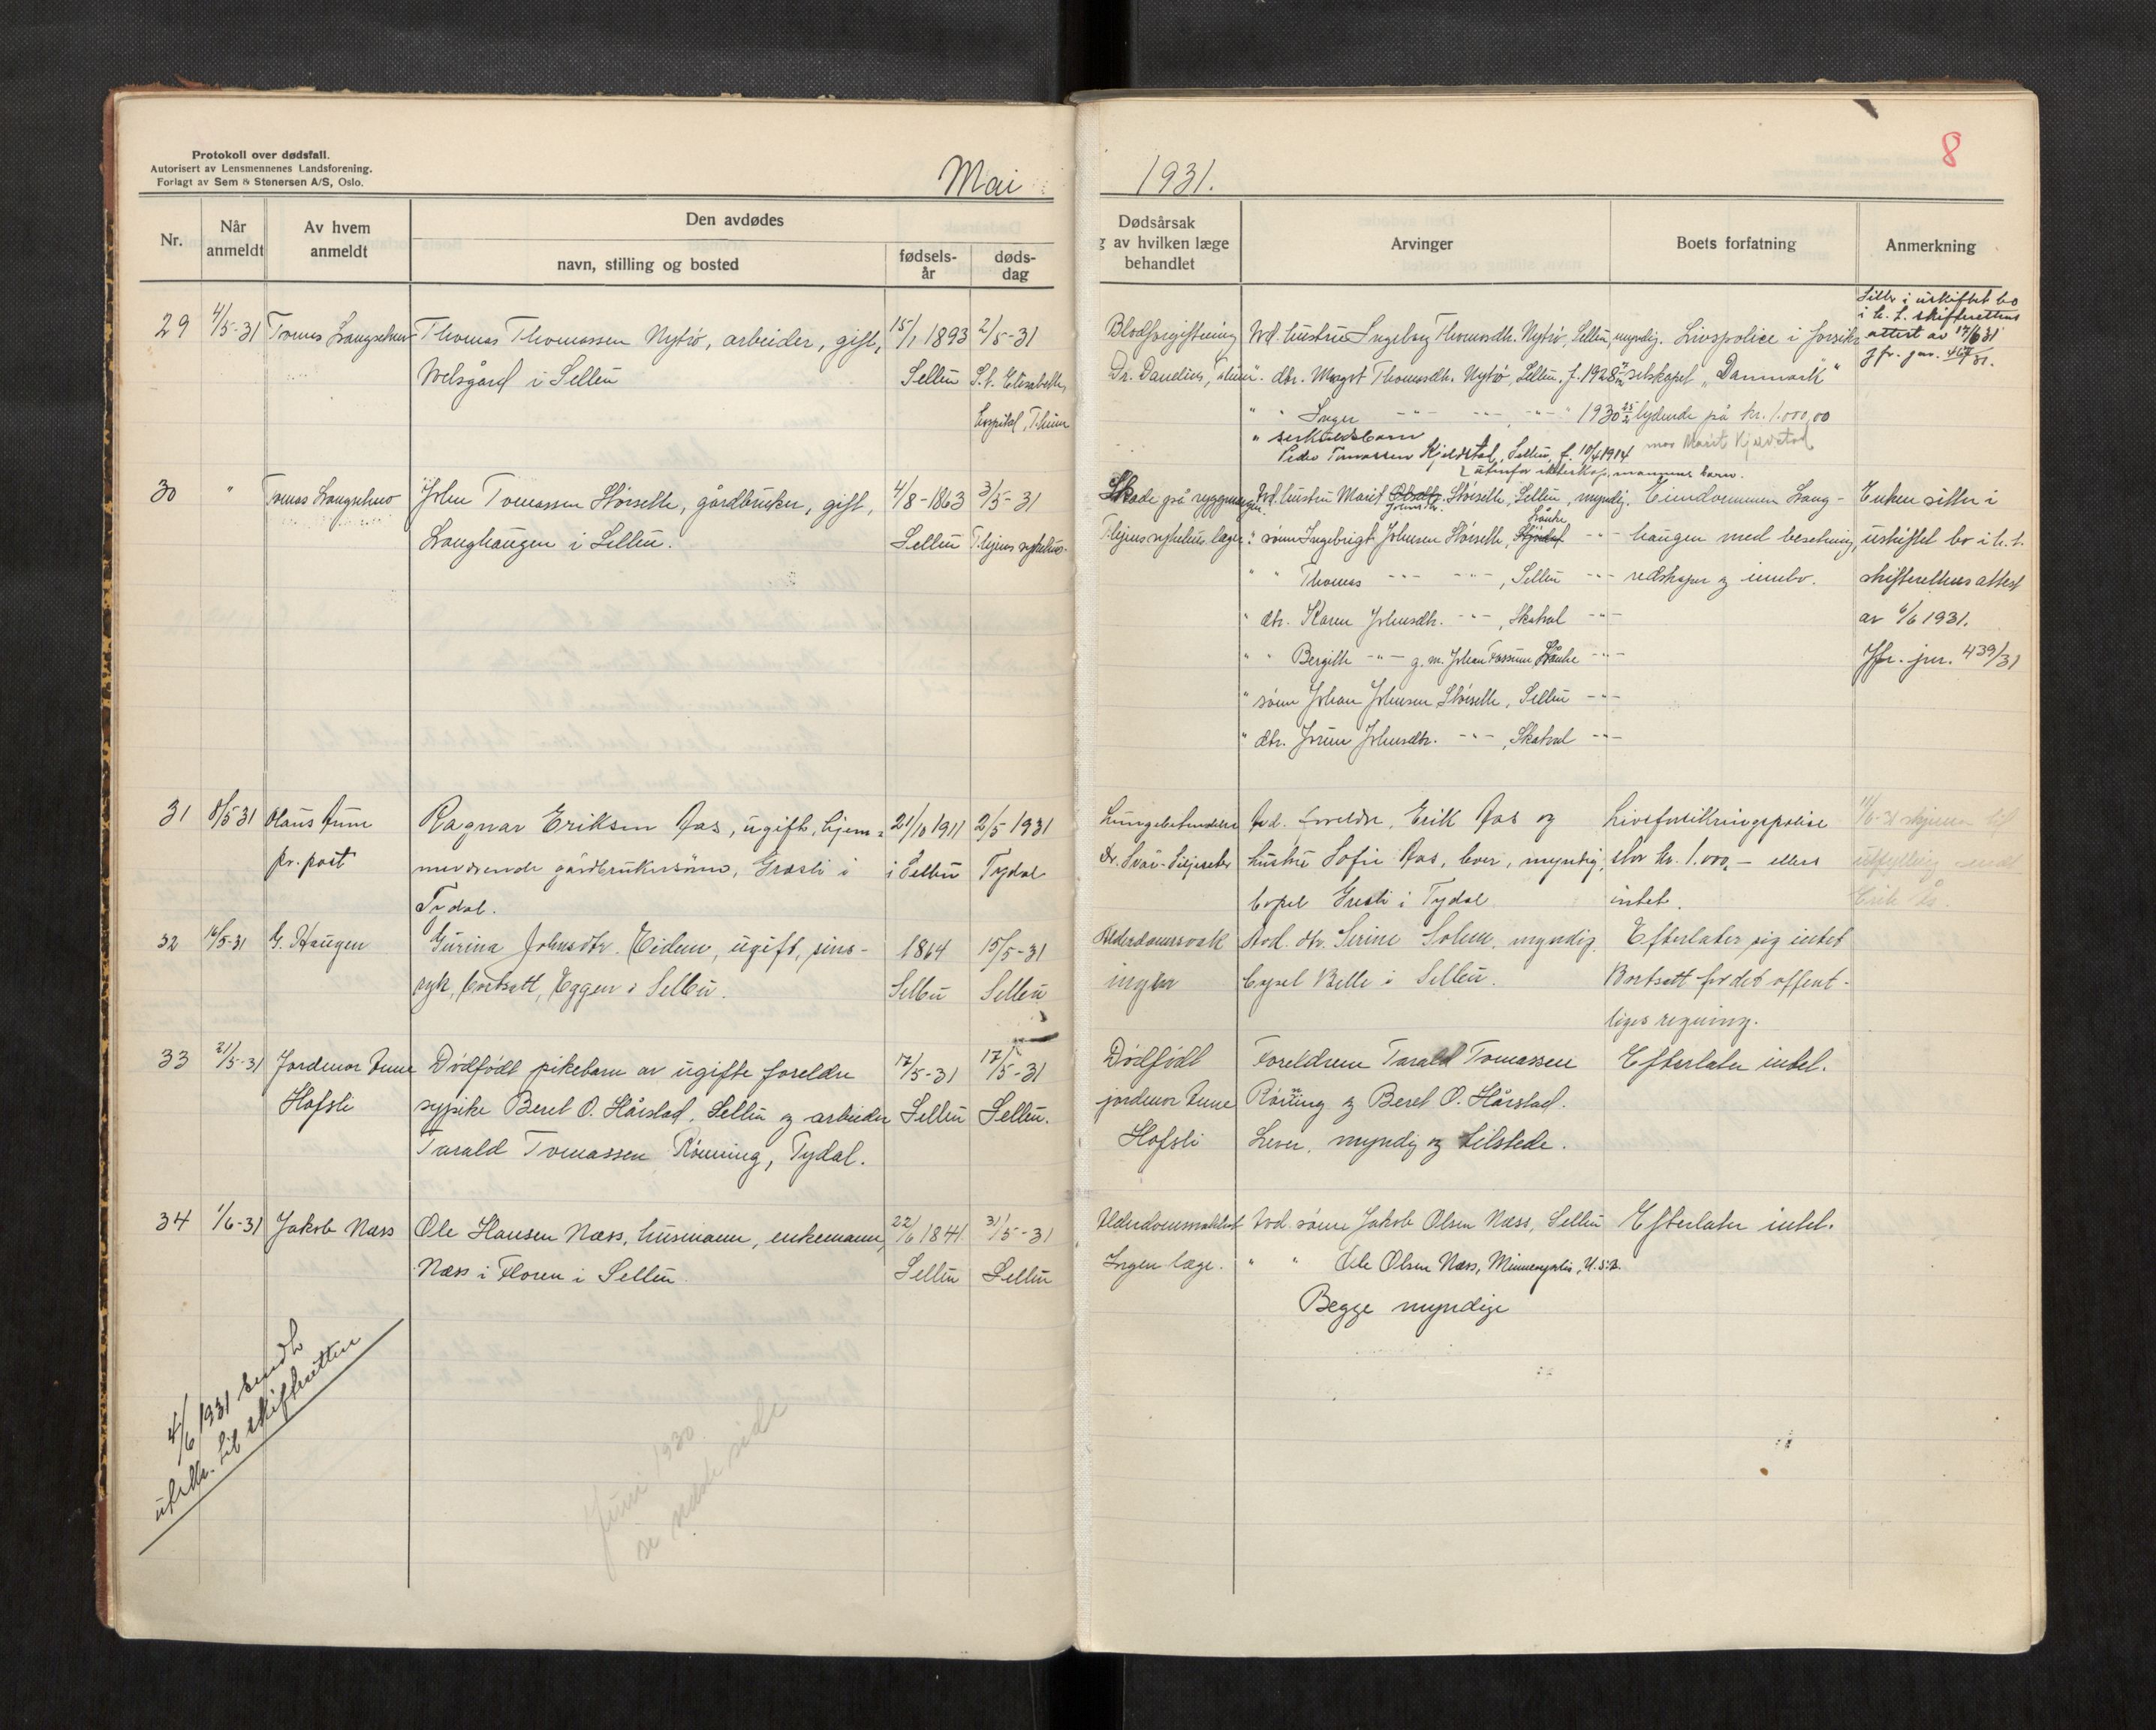 Protokoll over dødsfall.
Autorisert av Lensmennenes Landsforening.
Forlagt av Sem & Stenersen A/S, Oslo.
Mai
Nr.
Når
anmeldt
Av hvem
anmeldt
Den avdødes
navn, stilling og bosted
fødsels-
år
døds-
dag
29 4/5-31 Thomas Thomassen Nytrø, arbeider, gift, 15/1 1893 2/5-31
i Selbu Selbu St. Elisabeths
hospital, T.hjem
30 " John Tomassen Størseth, gårdbruker, gift, 4/8-1863 3/5-31
Langhaugen i Selbu. Selbu T.hjems sykehus.
31 8/5-31 Olaus Aune Ragnar Eriksen Aas, ugift, hjem- 21/10 1911 2/5 1931
pr. post meværende gårdbrukersønn, Græsli i i Selbu Tydal
Tydal.
32 16/5-31 G. Haugen Gurina Johnsdtr. Eidem, ugift, sins- 1864 15/5-31
syk, bortsatt, Eggen i Selbu. Selbu Selbu
33 21/5-31 Jordmor Aune Dødfødt pikebarn av ugifte foreldre 17/5-31 17/5-31
Hofsli sypike Beret O. Hårstad, Selbu og arbeider Selbu Selbu.
Tarald Tomassen Rønning, Tydal.
34 1/6-31 Jakob Næss Ole Hansen Næss, husmann, enkemann, 22/6 1841 31/5-31
Næss i Floren i Selbu. Selbu Selbu
4/6 1931 sendt
utskr. til skifteretten
Juni 1930.
se neste side
1931.
8
Dødsårsak
g av hvilken læge
behandlet
Arvinger
Boets forfatning
Anmerkning
Blodforgiftning Hustru Ingeborg Thomasdtr. Nytrø, Selbu, myndig. Livspolice i forsikr.
Dr. Danelius, T.hjem " dtr. Margit Thomasdtr. Nytrø, Selbu, f. 1928 selskapet "Danmark"
" " Inger 1930 lydende på kr. 1.000,00
" særkuldsbarn
Peder Tomassen Kjeldstad, Selbu, f. 10/4 1914 mor Marit Kjelstad
utenfor ekteskap, mannens barn.
Sitter i uskiftet bo
i h. t. skifterettens
attest av 17/6 31
Jfr. jnr.
Skade på ryggmargen. hustru Marit Johnsdtr. Størseth, Selbu, myndig. Eiendommen Lang-
T.hjems sykehus læge " sønn Ingebrigt Johnsen Størseth, Lånke -"- haugen med besetning,
" " Thomas -"- -"-, Selbu -"- redskaper og innbo.
" dtr. Karen Johnsdtr. -"-, Skatval -"-
" " Bergitte -"- g. m. Johan Fossum Lånke -"-
" sønn Johan Johnsen Størseth, Selbu -"-
" dtr. Jorun Johnsdtr. -"-, Skatval -"-
Enken sitter i
uskiftet bo i h. t.
skifterettens attest
av 6/6 1931.
Jfr. jnr. 439/31
Lungebetendelse Avd. foreldre, Erik Aas og Livsforsikringspolise
hustru Sofie Aas, lever, myndig, stor kr. 1.000,- ellers
bopel Græsli i Tydal intet.
Alderdomssvak Avd. dtr. Serine Solem, myndig. Efterlater sig intet
ingen bopel Velle i Selbu. Bortsatt for det offent-
liges regning.
Dødfødt Foreldrene Tarald Tomassen Efterlater intet.
jordmor Aune Rønning og Beret O. Hårstad.
Hofsli Lever, myndig og tilstede.
Avd. sønn Jakob Olsen Næss, Selbu Efterlater intet.
Ingen læge. " " Ole Olsen Næss, Minneapolis, U.S.A.
Begge myndige